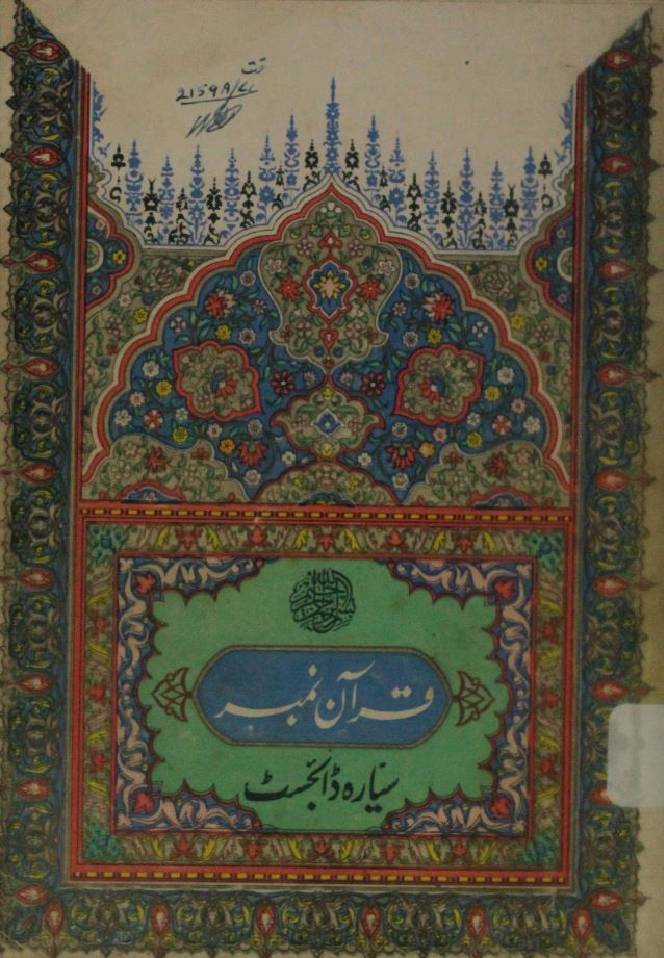 2159A/LL
بسم الله الرحمن الرحيم
قرآن نمبر
سیارہ ڈائجسٹ